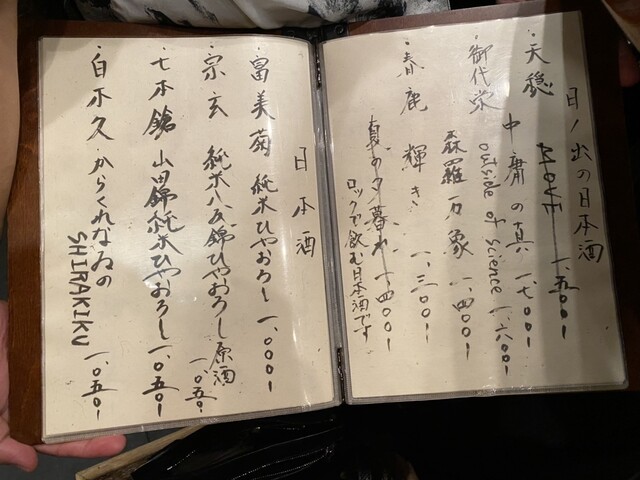 日ノ出の日本酒
・天穏 MOVE 一、五〇〇ー
中庸の真 一、七〇〇ー
・御代栄 outside of science 一、六〇〇ー
森羅万象 一、四〇〇ー
・春鹿 輝き 一、三〇〇ー
真夏の夕暮れ 一、四〇〇ー
ロックで飲む日本酒です
日本酒
・富美菊 純米ひやおろし 一、〇〇〇ー
・宗玄 純米八反錦ひやおろし原酒 一、〇五〇ー
・七本鎗 山田錦純米ひやおろし 一、〇五〇ー
・白木久 からくれなゐの SHIRAKIKU 一、〇五〇ー